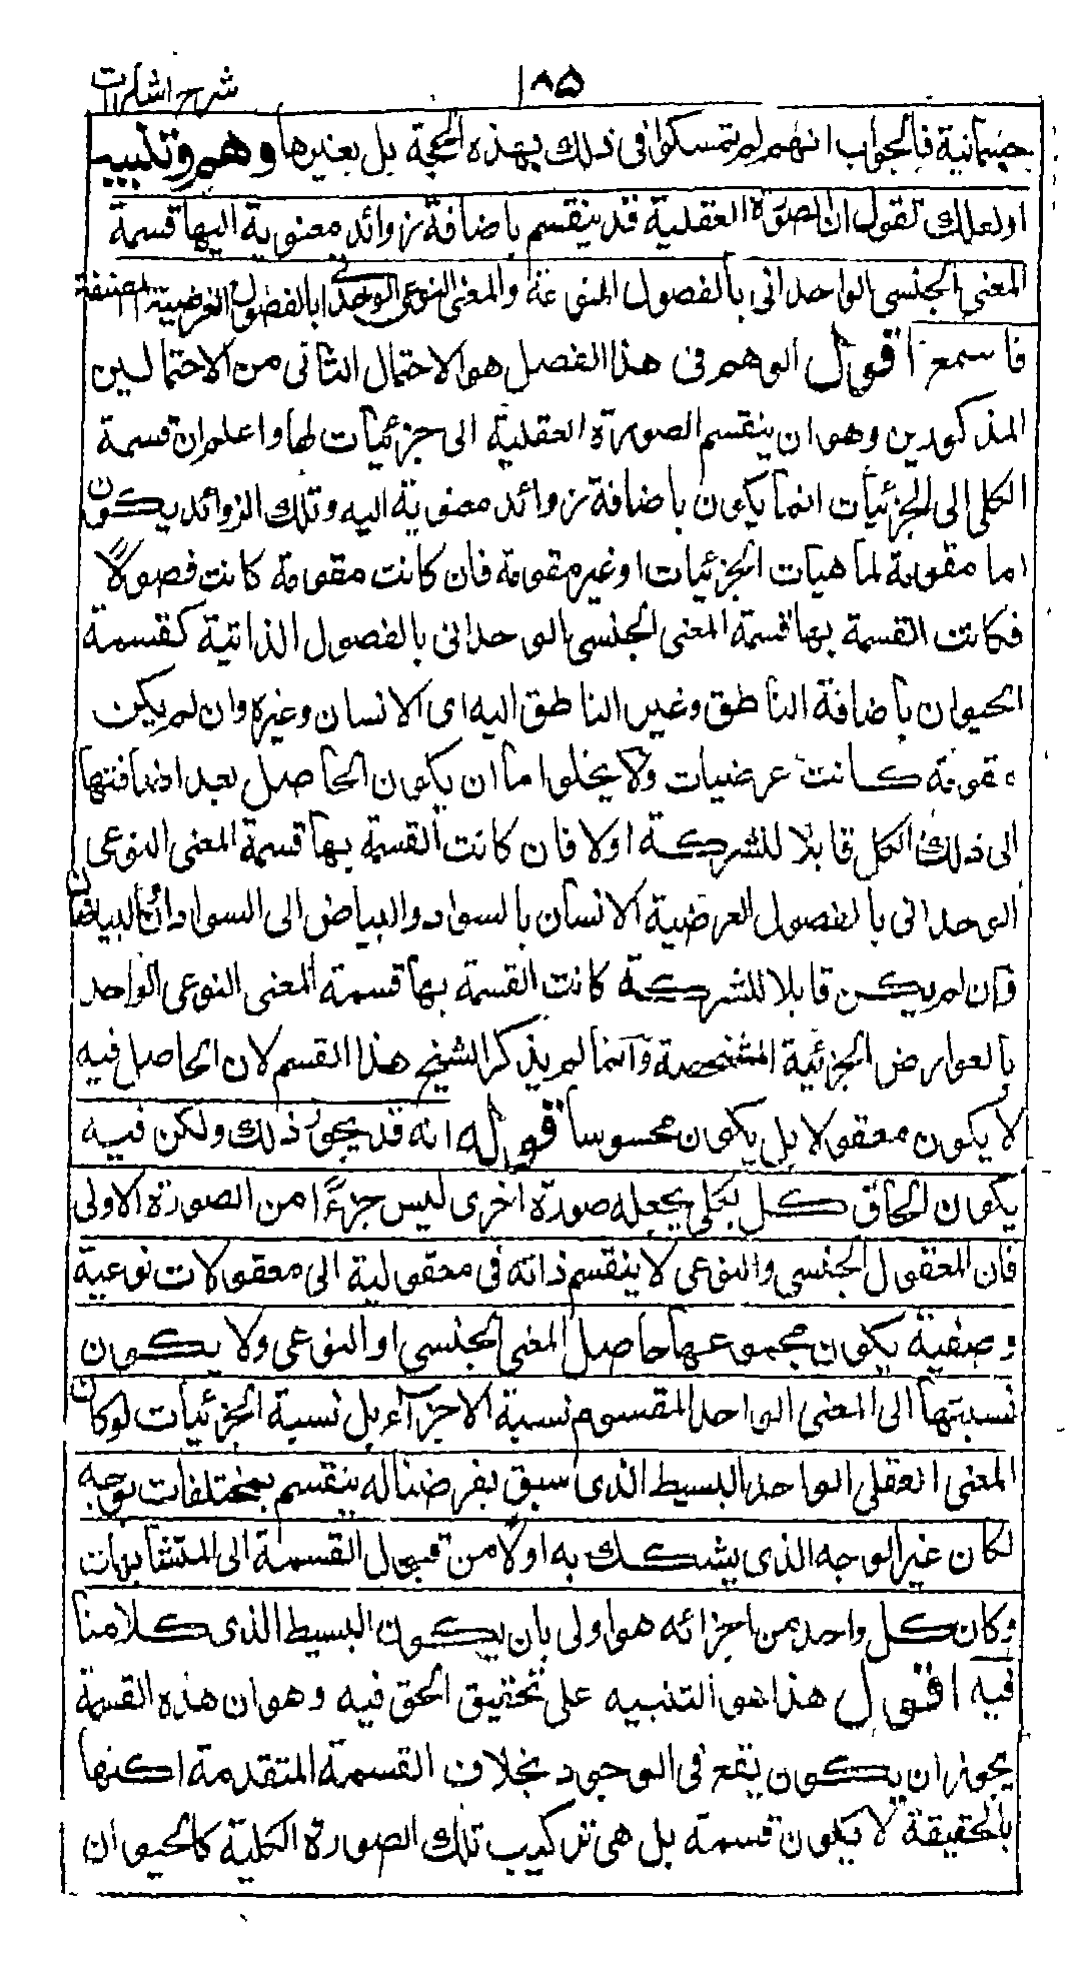 ١٨٥ شرح اشارات
جسمانية فالجواب انهم لم يتمسكوا فى ذلك بهذه الحجة بل بغيرها وهم وتنبيه
او لعلك تقول ان الصورة العقلية قد ينقسم باضافة زوائد معنوية اليها قسمة
المعنى الجنسى الواحدانى بالفصول المنوعة والمعنى النوعى الوحدانى بالفصول العرضية المصنفة
فاسمع اقول الوهم فى هذا الفصل هو الاحتمال الثانى من الاحتمالين
المذكورين وهو ان ينقسم الصورة العقلية الى جزئيات لها واعلم ان قسمة
الكلى الى الجزئيات انما يكون باضافة زوائد معنوية اليه وتلك الزوائد يكون
اما مقومة لماهيات الجزئيات او غير مقومة فان كانت مقومة كانت فصولاً
فكانت القسمة بها قسمة المعنى الجنسى الوحدانى بالفصول الذاتية كقسمة
الحيوان باضافة الناطق وغير الناطق اليه اى الانسان وغيره وان لم يكن
مقومة كانت عرضيات ولا يخلوا ما ان يكون الحاصل بعد اضافتها
الى ذلك الكل قابلا للشركة اولا فان كانت القسمة بها قسمة المعنى النوعى
الوحدانى بالفصول العرضية الانسان بالسواد والبياض الى السودان والبيضان
وان لم يكن قابلا للشركة كانت القسمة بها قسمة المعنى النوعى الواحد
بالعوارض الجزئية المشخصة وانما لم يذكر الشيخ هذا القسم لان الحاصل فيه
لا يكون معقولا بل يكون محسوسا قوله انه قد يجوز ذلك ولكن فيه
يكون الحاق كل بكلى يجعله صورة اخرى ليس جزءًا من الصورة الاولى
فان المعقول الجنسى والنوعى لا ينقسم ذاته فى معقولية الى معقولات نوعية
وصنفية يكون مجموعها حاصل المعنى الجنسى او النوعى ولا يكون
نسبتها الى المعنى الواحد المقسوم نسبة الاجزآء بل نسبة الجزئيات لو كان
المعنى العقلى الواحد البسيط الذى سبق بفرضنا له ينقسم بمختلفات بوجه
لكان غير الوجه الذى يشكك به اولا من قبول القسمة الى المتشابهات
وكان كل واحد من اجزائه هو اولى بان يكون البسيط الذى كلامنا
فيه اقول هذا هو التنبيه على تحقيق الحق فيه وهو ان هذه القسمة
يجوز ان يكون يقع فى الوجود بخلاف القسمة المتقدمة لكنها
بالحقيقة لا يكون قسمة بل هى تركيب تلك الصورة الكلية كالحيوان